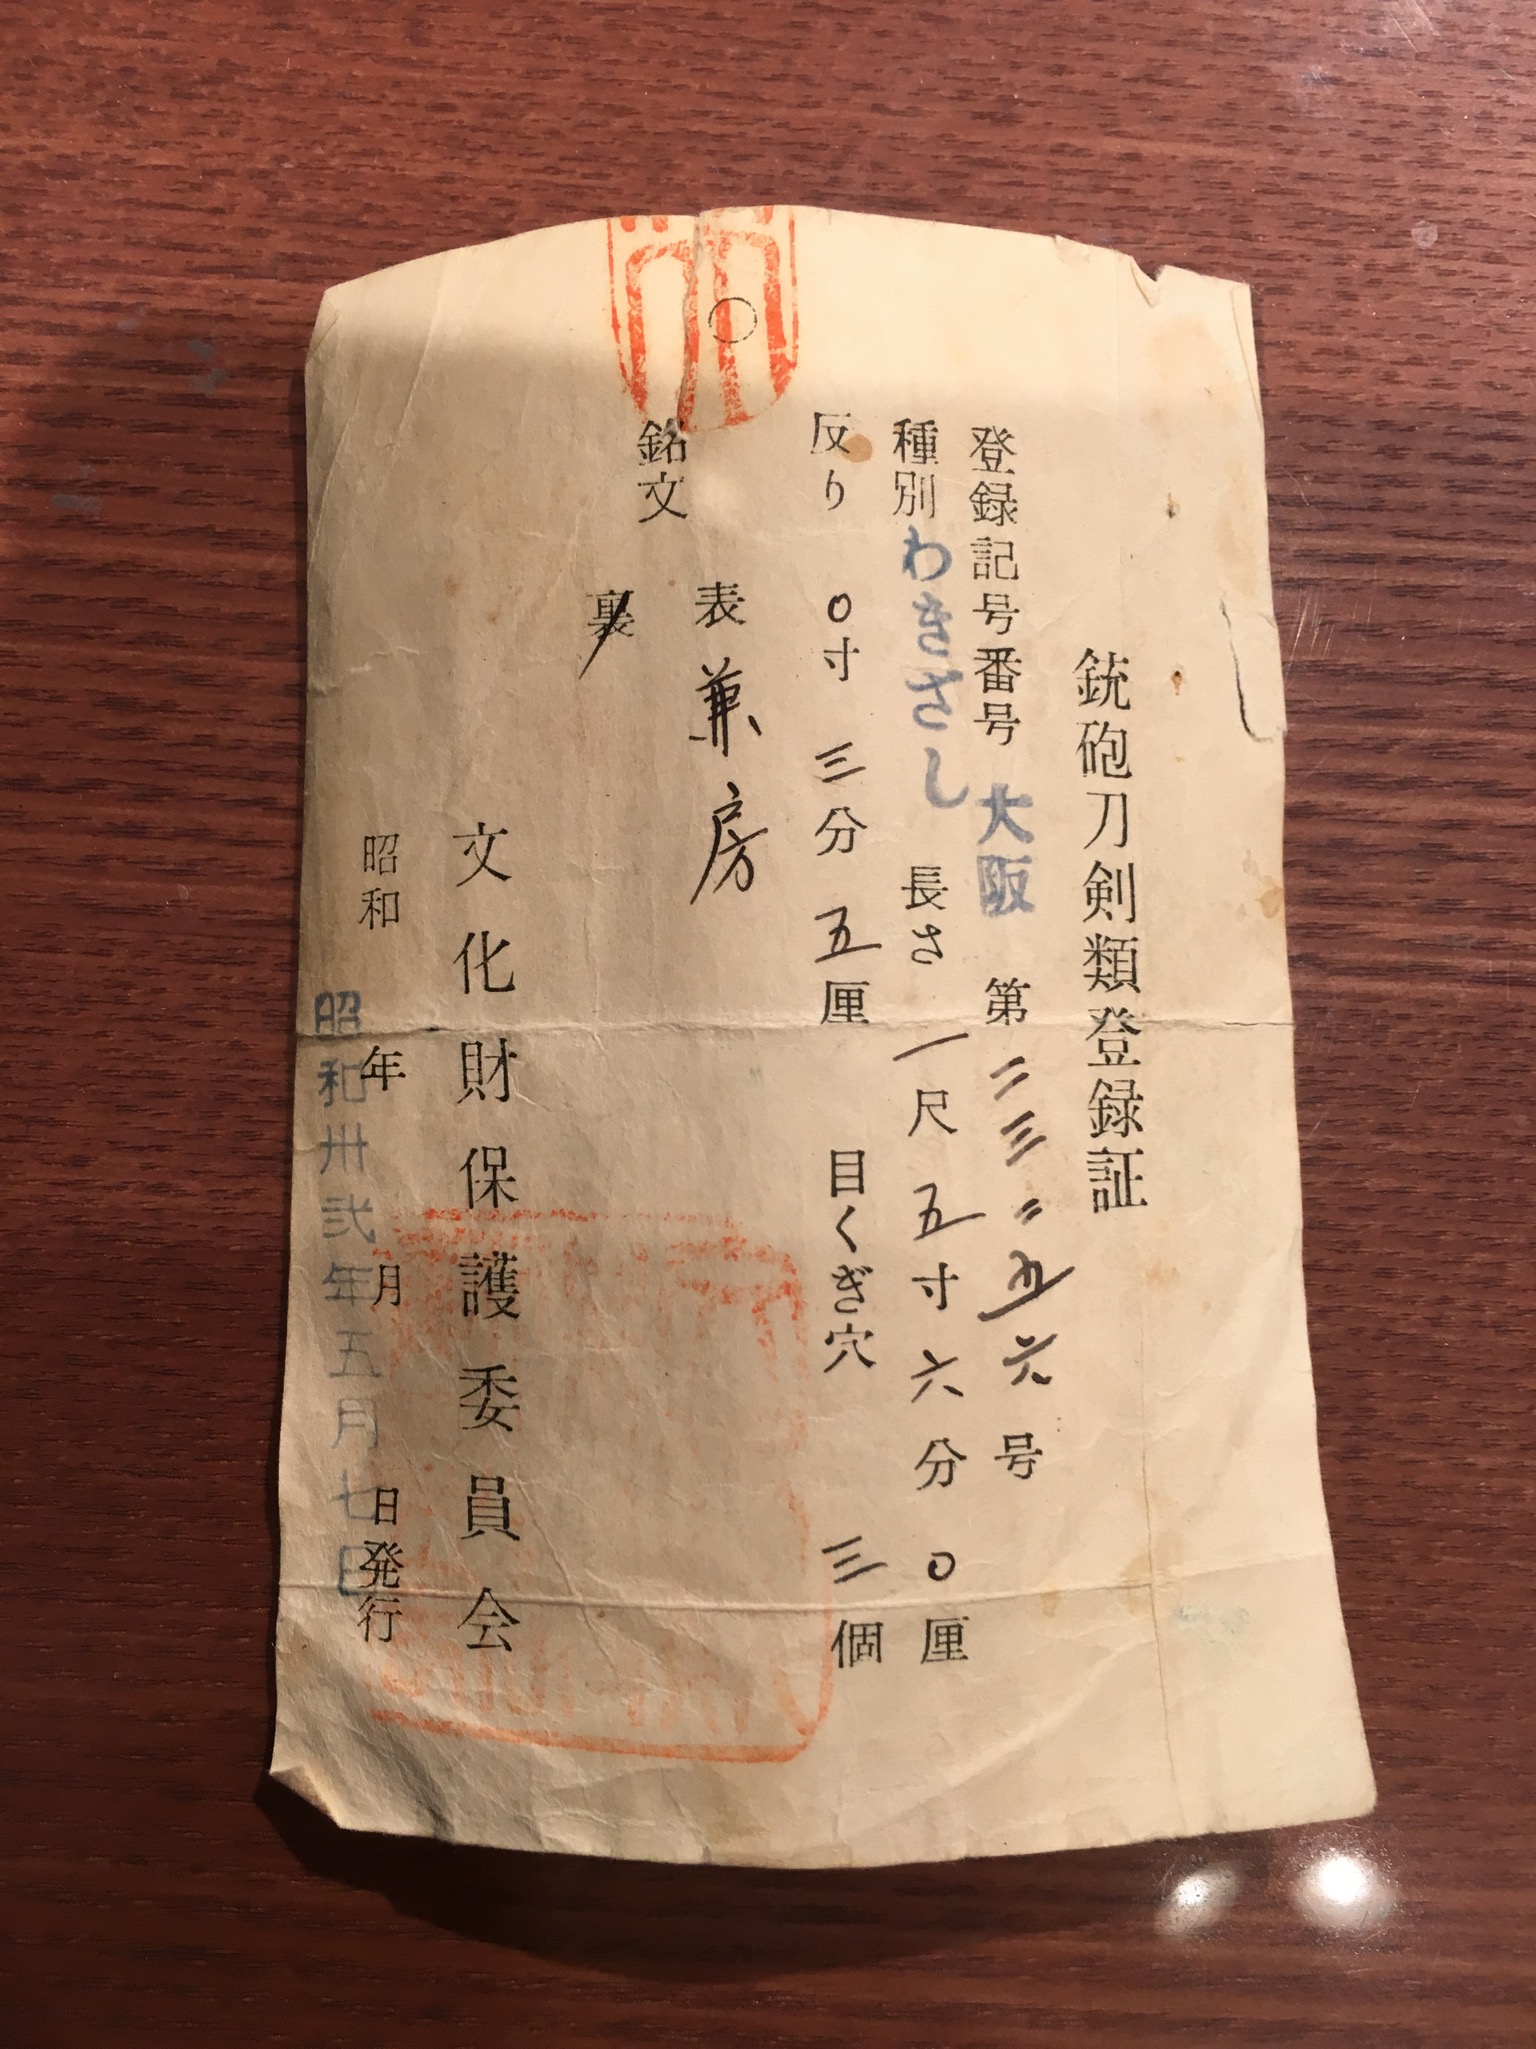 銃砲刀剣類登録証
登録記号番号 大阪 第二三二五六号
種別 わきざし 長さ 一尺五寸六分〇厘
反り 〇寸三分五厘 目くぎ穴 三個
銘文 表 兼房
裏
文化財保護委員会
昭和 年 月 日発行
昭和卅弐年五月七日